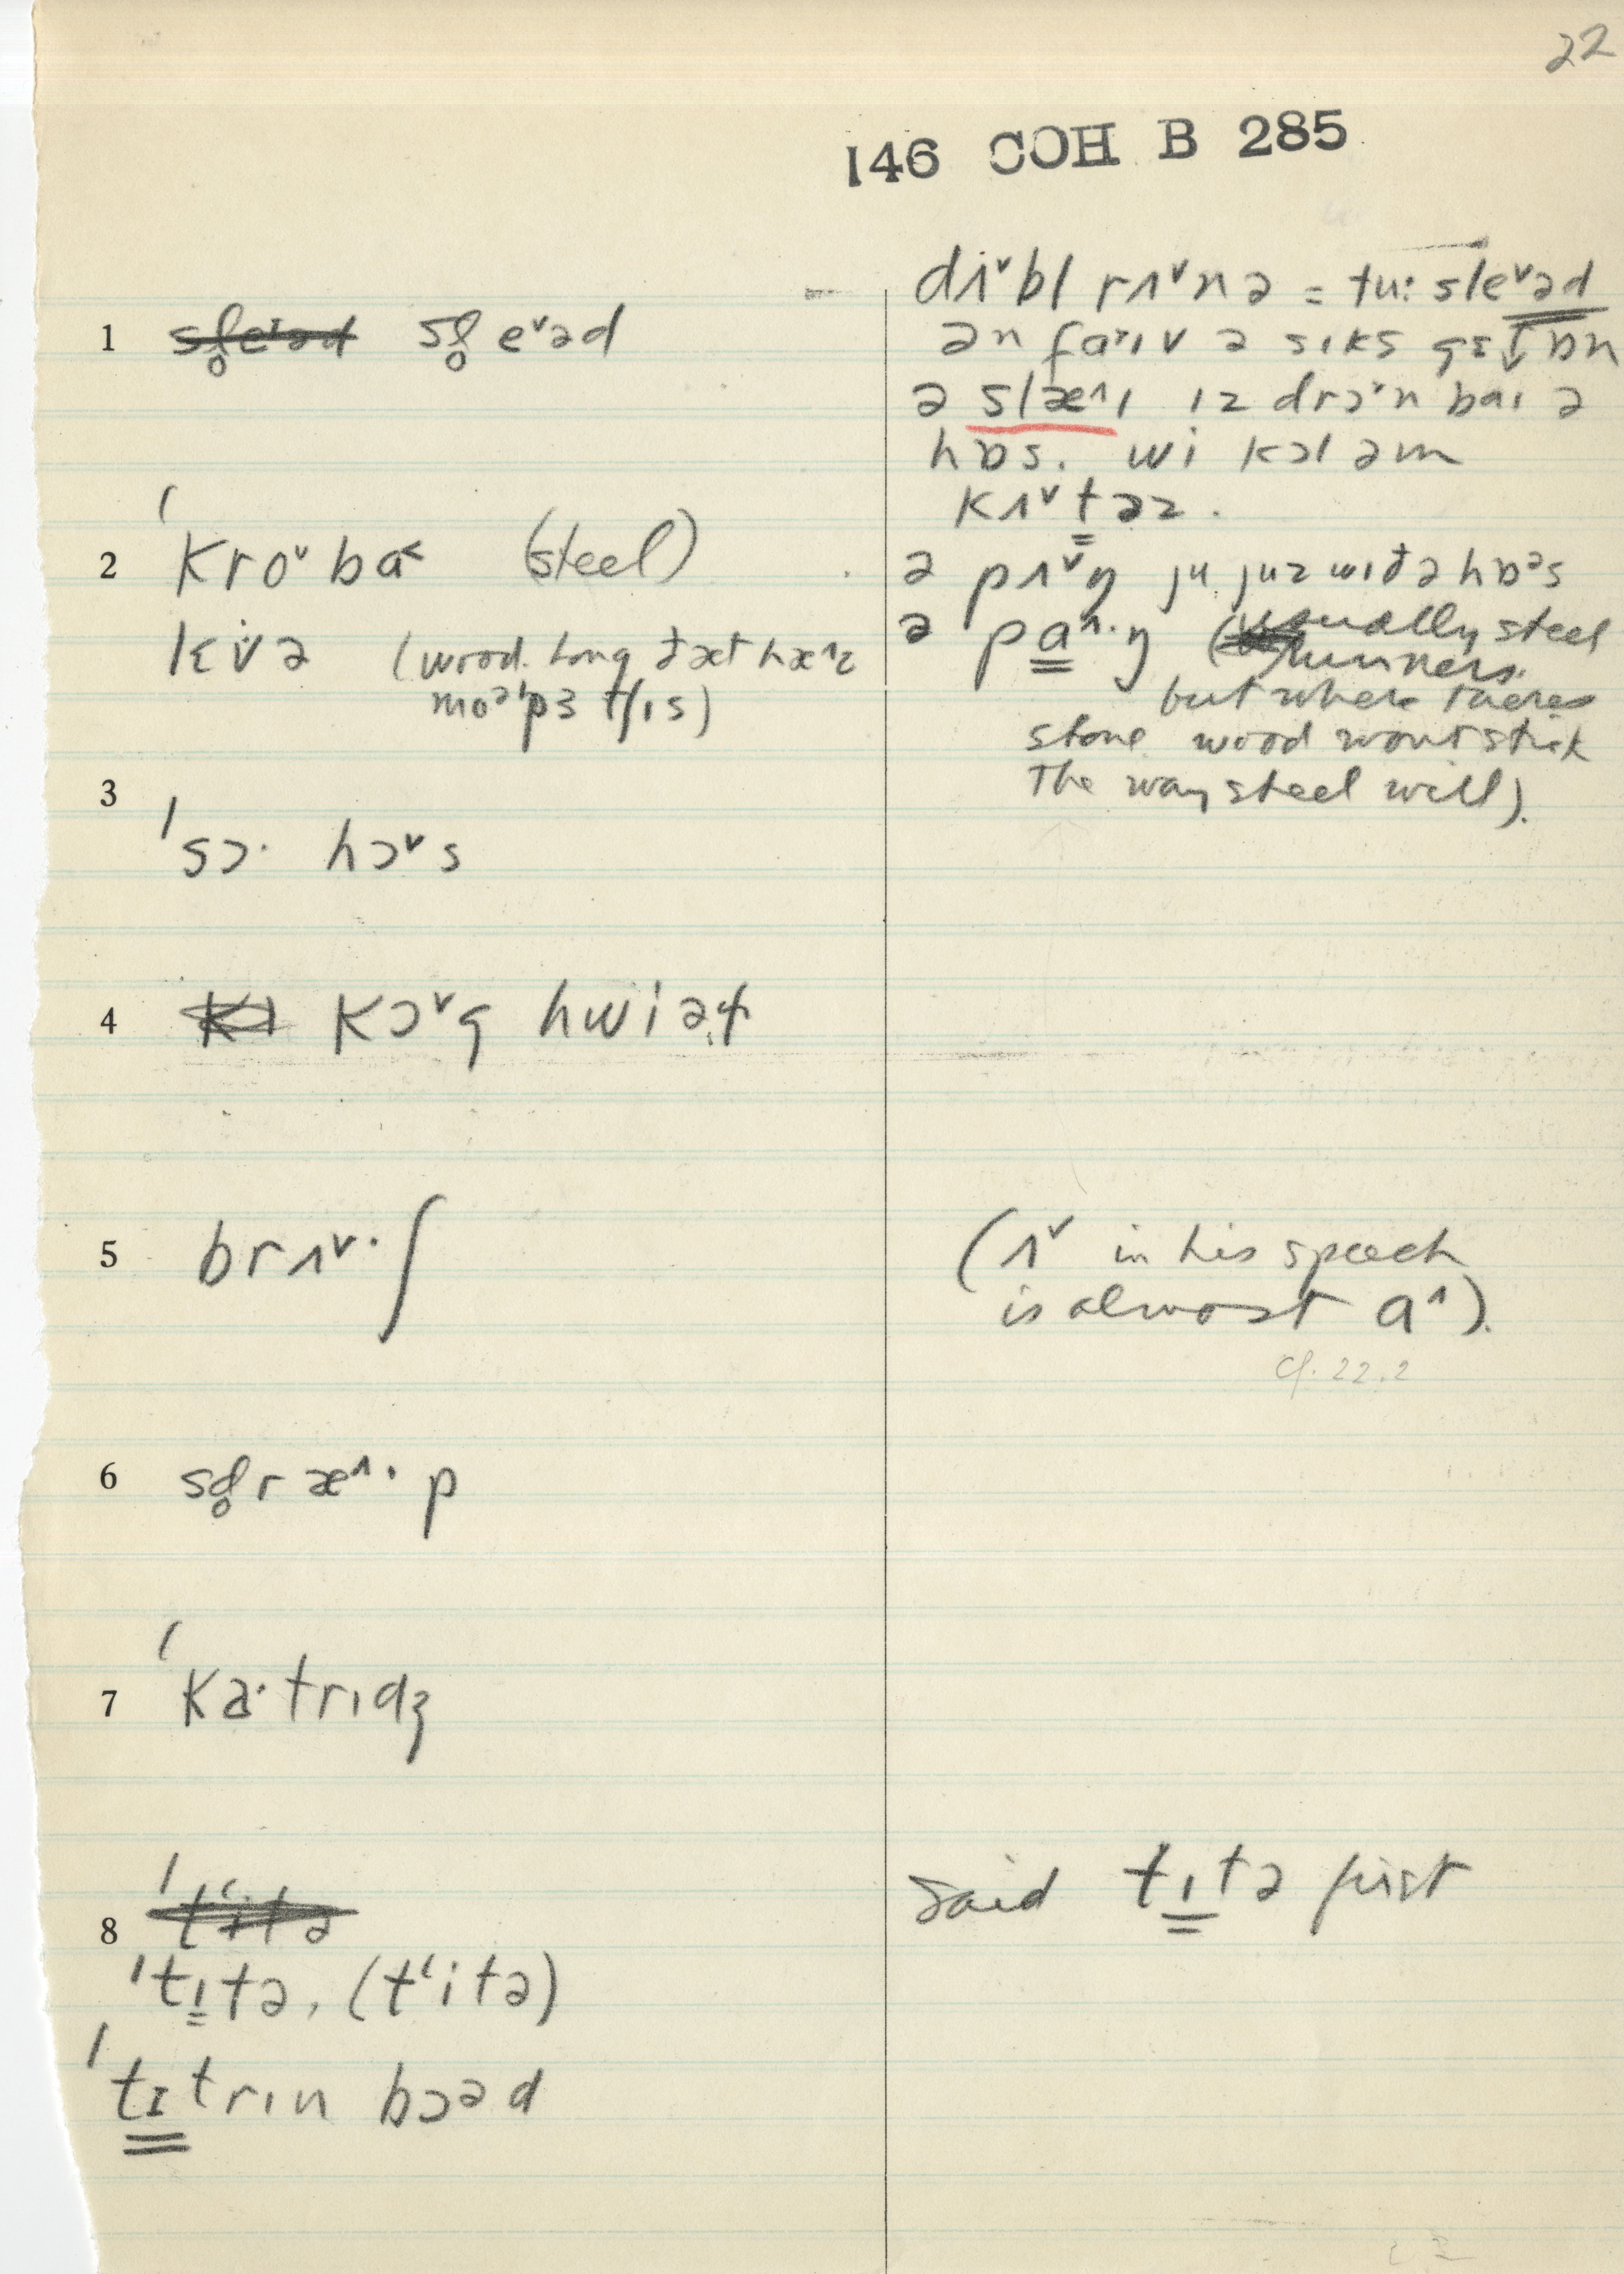 22
146 COH B 285
1 sl̥eˇəd sl̥ eˇəd
2 ˈkroˇ ba˂ (steel)
kiˇə (wood. long ðət hæ^z
moəˈpɜ tʃɪs)
3 ˈsɔ· hɔˇs
4 kɔˇg hwiəɫ
5 brʌˇ·ʃ
6 sd̥r æ^· p
7 ˈka·trɪdʒ
8 ˈtʻitə
ˈtɪtə, (tʻitə)
ˈtɪtrɪn bɔəd
dʌˇbl rʌˇnə = tu: sleˇəd
ən faˇɪv ə sɪks get ɒn
ə slæ^ɪ ɪz drɔˇn baɪ ə
hɒs. wi kɔl əm
kʌˇtəz.
ə pʌˇŋ ju juz wɪð ə hɒəs
ə pa^·ŋ (usually steel
runners.
but where theres
stone wood wont stick
the way steel will).
(ʌˇ in his speech
is almost a^).
cf. 22.2
Said tɪtə first